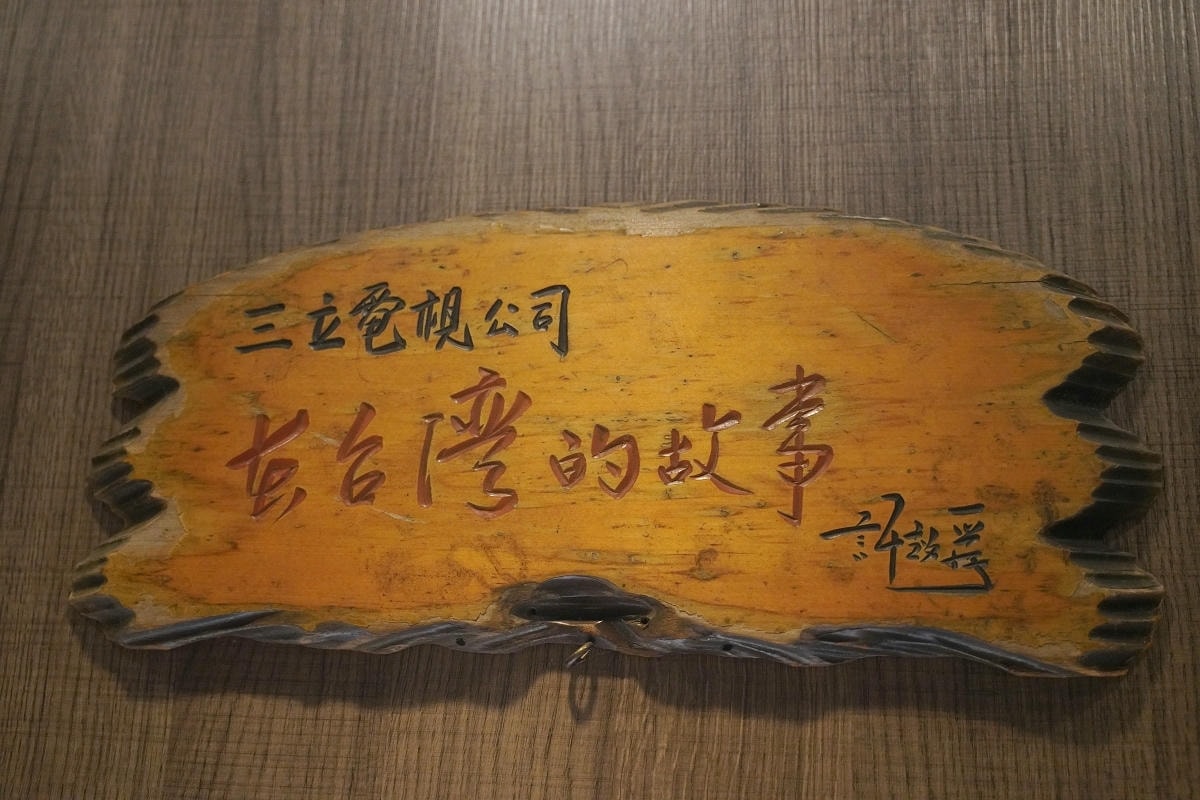 三立電視公司
在台灣的故事